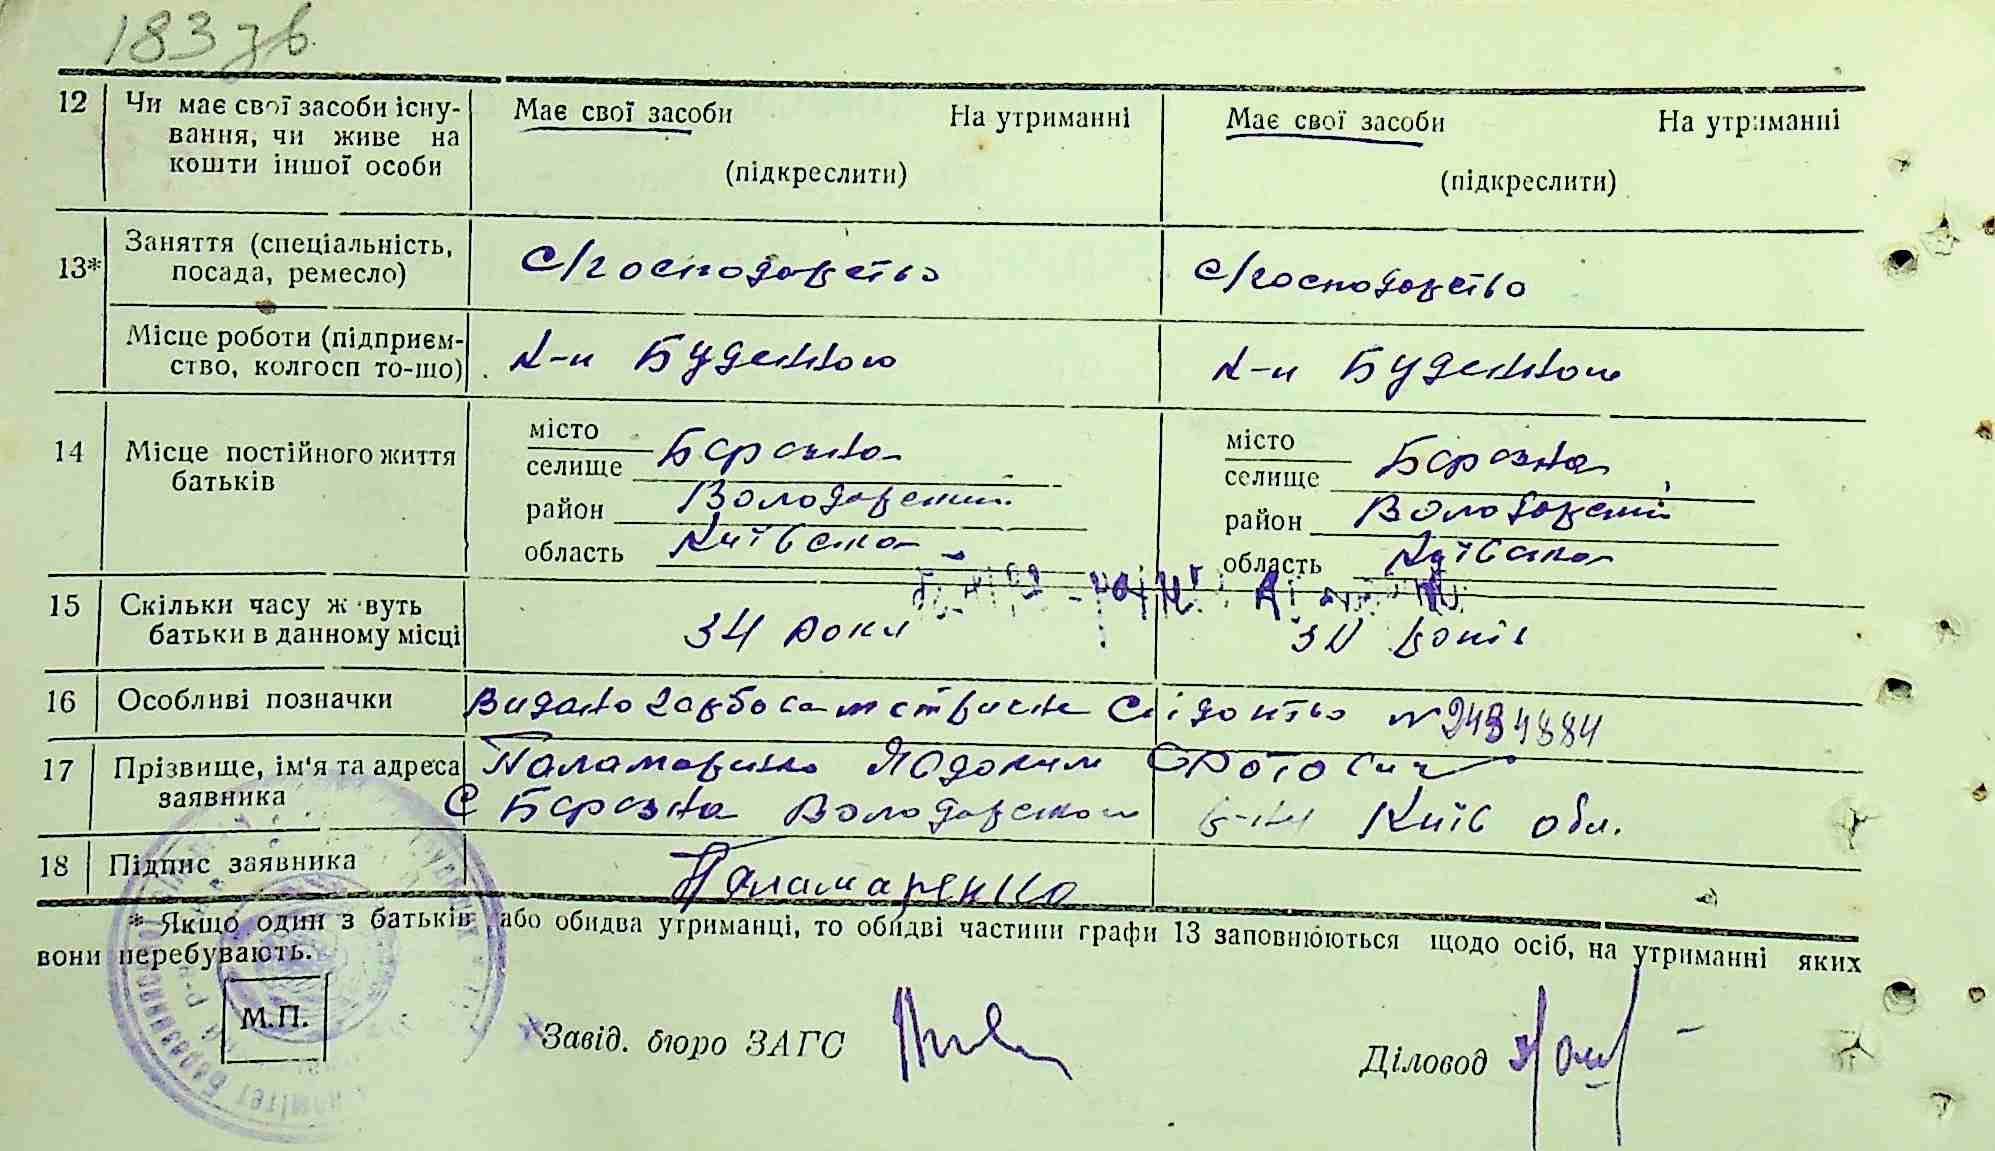 183 зв.
12 Чи має свої засоби існу-
вання, чи живе на
кошти іншої особи
Має свої засоби На утриманні
(підкреслити)
Має свої засоби На утриманні
(підкреслити)
13* Заняття (спеціальність,
посада, ремесло)
с/господарство
с/господарство
Місце роботи (підприєм-
ство, колгосп то-що)
к-п Буденного
к-п Буденного
14 Місце постійного життя
батьків
місто
селище Березна
район Володарський
область Київська
місто
селище Березна
район Володарський
область Київська
15 Скільки часу ж вуть
батьки в данному місці
34 роки
років
16 Особливі позначки
Видано свідоцтво №
17 Прізвище, ім'я та адреса
заявника
Паламаренко
с Березна Володарського р-ну Київ обл.
18 Підпис заявника
Паламаренко
* Якщо один з батьків або обидва утриманці, то обидві частини графи 13 заповнюються щодо осіб, на утриманні яких
вони перебувають.
М.П.
Завід. бюро ЗАГС
Діловод